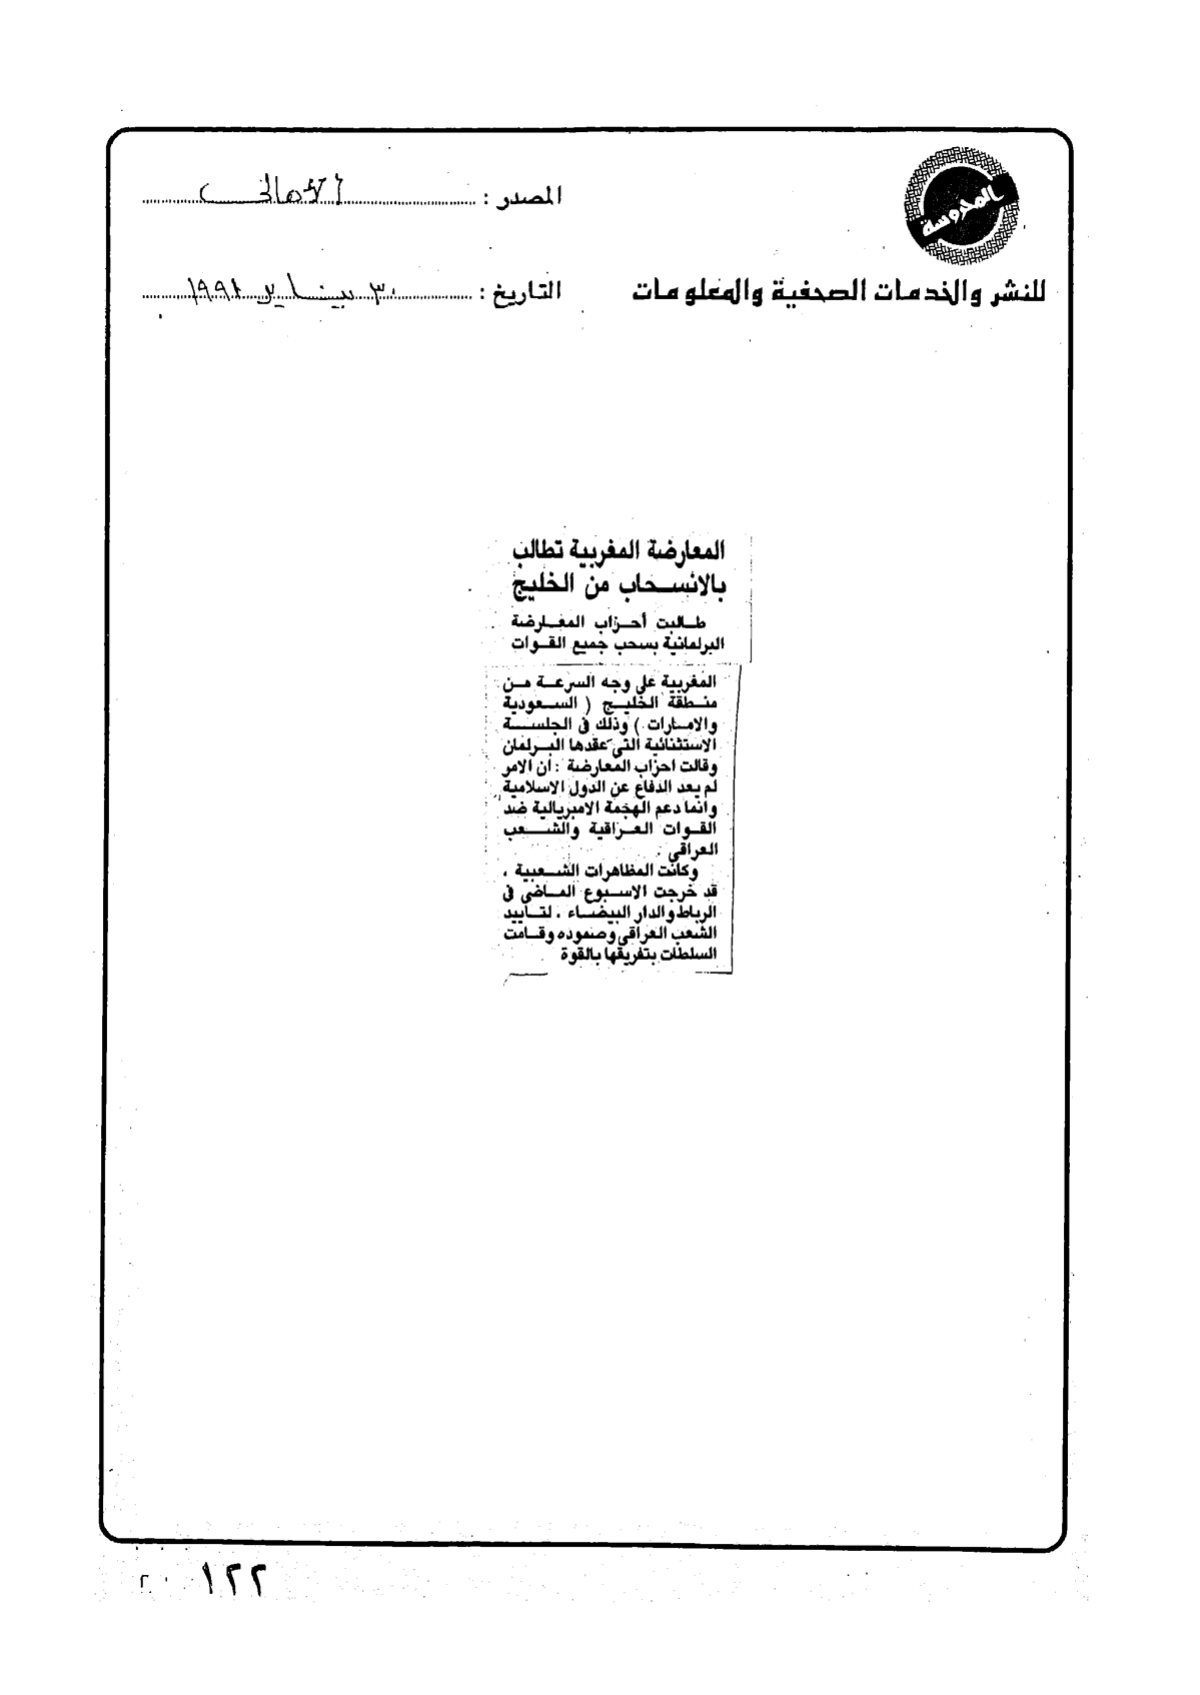 المحروسة
المصدر : الأهالى
للنشر والخدمات الصحفية والمعلومات
التاريخ : ٣٠ يناير ١٩٩١
المعارضة المغربية تطالب
بالانسحاب من الخليج
طالبت أحزاب المعارضة
البرلمانية بسحب جميع القوات
المغربية على وجه السرعة من
منطقة الخليج ( السعودية
والامارات ) وذلك فى الجلسة
الاستثنائية التى عقدها البرلمان
وقالت احزاب المعارضة : ان الامر
لم يعد الدفاع عن الدول الاسلامية
وانما دعم الهجمة الامبريالية ضد
القوات العراقية والشعب
العراقى .
وكانت المظاهرات الشعبية ،
قد خرجت الاسبوع الماضى فى
الرباط والدار البيضاء ، لتاييد
الشعب العراقى وصموده وقامت
السلطات بتفريقها بالقوة
١٢٢